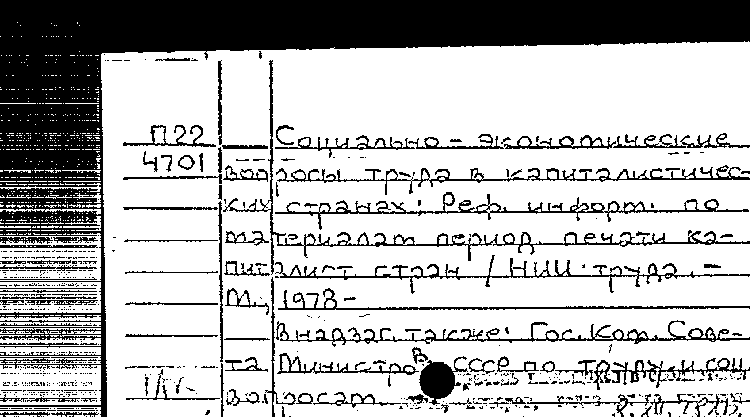 П22 Социально - экономические
4701 вопросы труда в капиталистичес-
ких странах: Реф. информ. по
материалам период. печати ка-
питалист. стран / НИИ труда. -
М., 1978-
В надзаг. также: Гос. Ком. Сове-
та Министров СССР по труду и соц.
вопросам.